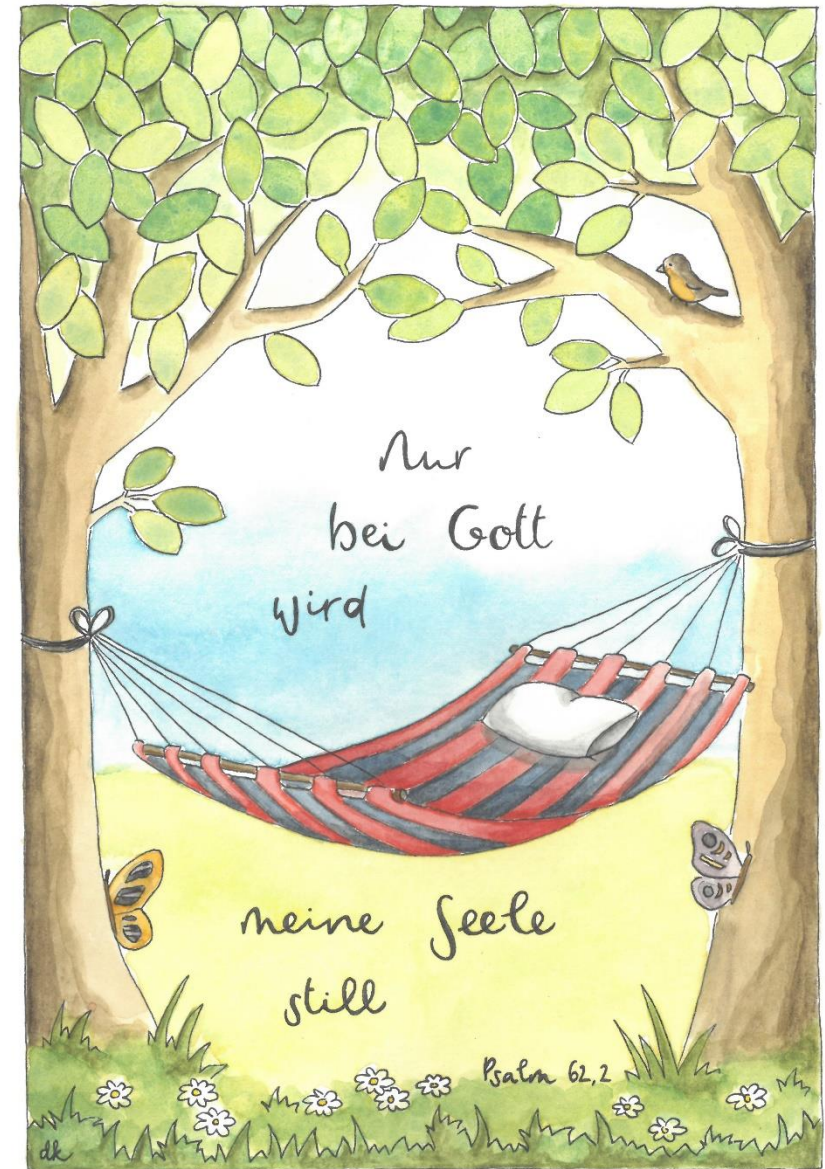 Nur
bei Gott
wird
meine Seele
still
Psalm 62,2
dk